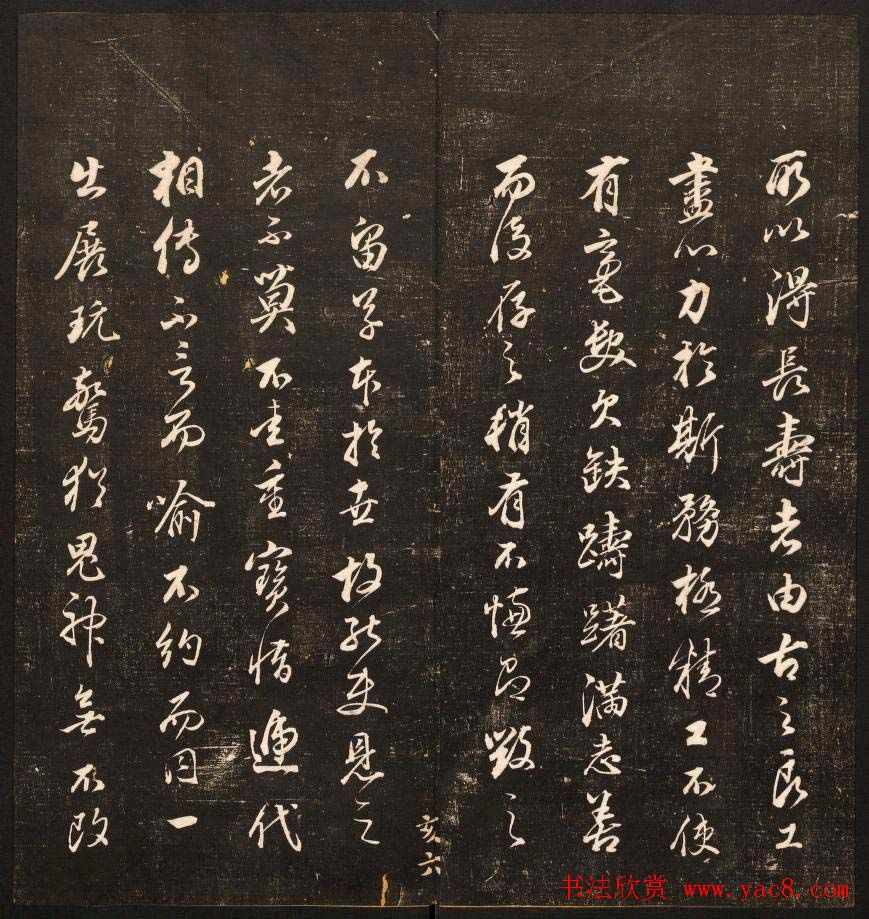 所以得長壽者由古之良工
盡心力於斯務極精工不使
有毫髮欠缺躊躇滿志善
而後存之稍有不慊即毀之
不留草本於世故能使見之
者不莫不重寶惜遞代
相傳不言而喻不約而同一
出展玩驚猶鬼神無不改
亥六
书法欣赏 www.yac8.com